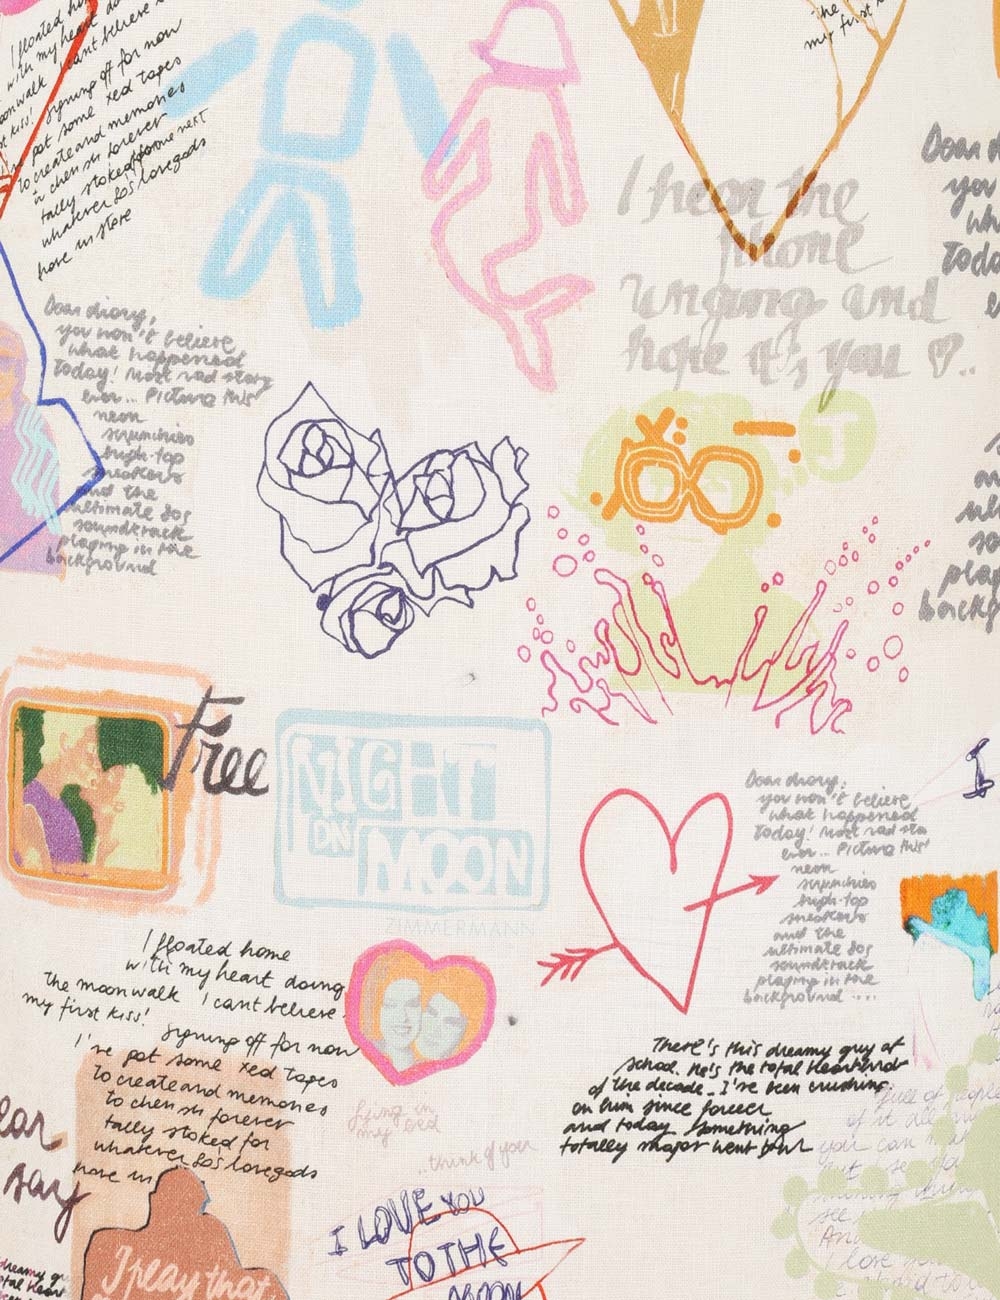 I floated home
with my heart do
moonwalk I cant believe
st kiss!
signing off for now
pot some xed tapes
to create and memories
to cherish forever
tally stoked for
me next
whatever 80's lovegods
have in store
the
my first k
I hear the
phone
ringing and
hope it's you ♡..
Dear d
you
wh
Toda
Dear diary,
you won't believe
what happened
today! Most rad story
ever... Picture this
neon
scrunchies
high-top
sneakers
and the
ultimate 80s
soundtrack
playing in the
background
play
backg
J
Free
NIGHT
ON
MOON
ZIMMERMANN
Dear diary,
you won't believe
what happened
today! Most rad sto
ever... Picture this
neon
scrunchies
high-top
sneakers
and the
ultimate 80s
soundtrack
playing in the
background ....
I floated home
with my heart doing
the moonwalk I cant believe
my first kiss!
signing off for now
I've pot some xed tapes
to create and memories
to cherish forever
tally stoked for
whatever 80's lovegods
have in
There's this dreamy guy at
school. He's the total heartthrob
of the decade. I've been crushing
on him since forever
and today something
totally major went down
lying in
my bed
...think of you
full of people
of it all my
you can
but
see
And
I love you
ear
say
I play that
I LOVE YOU
TO THE
MOON
dreamy gu
total heart